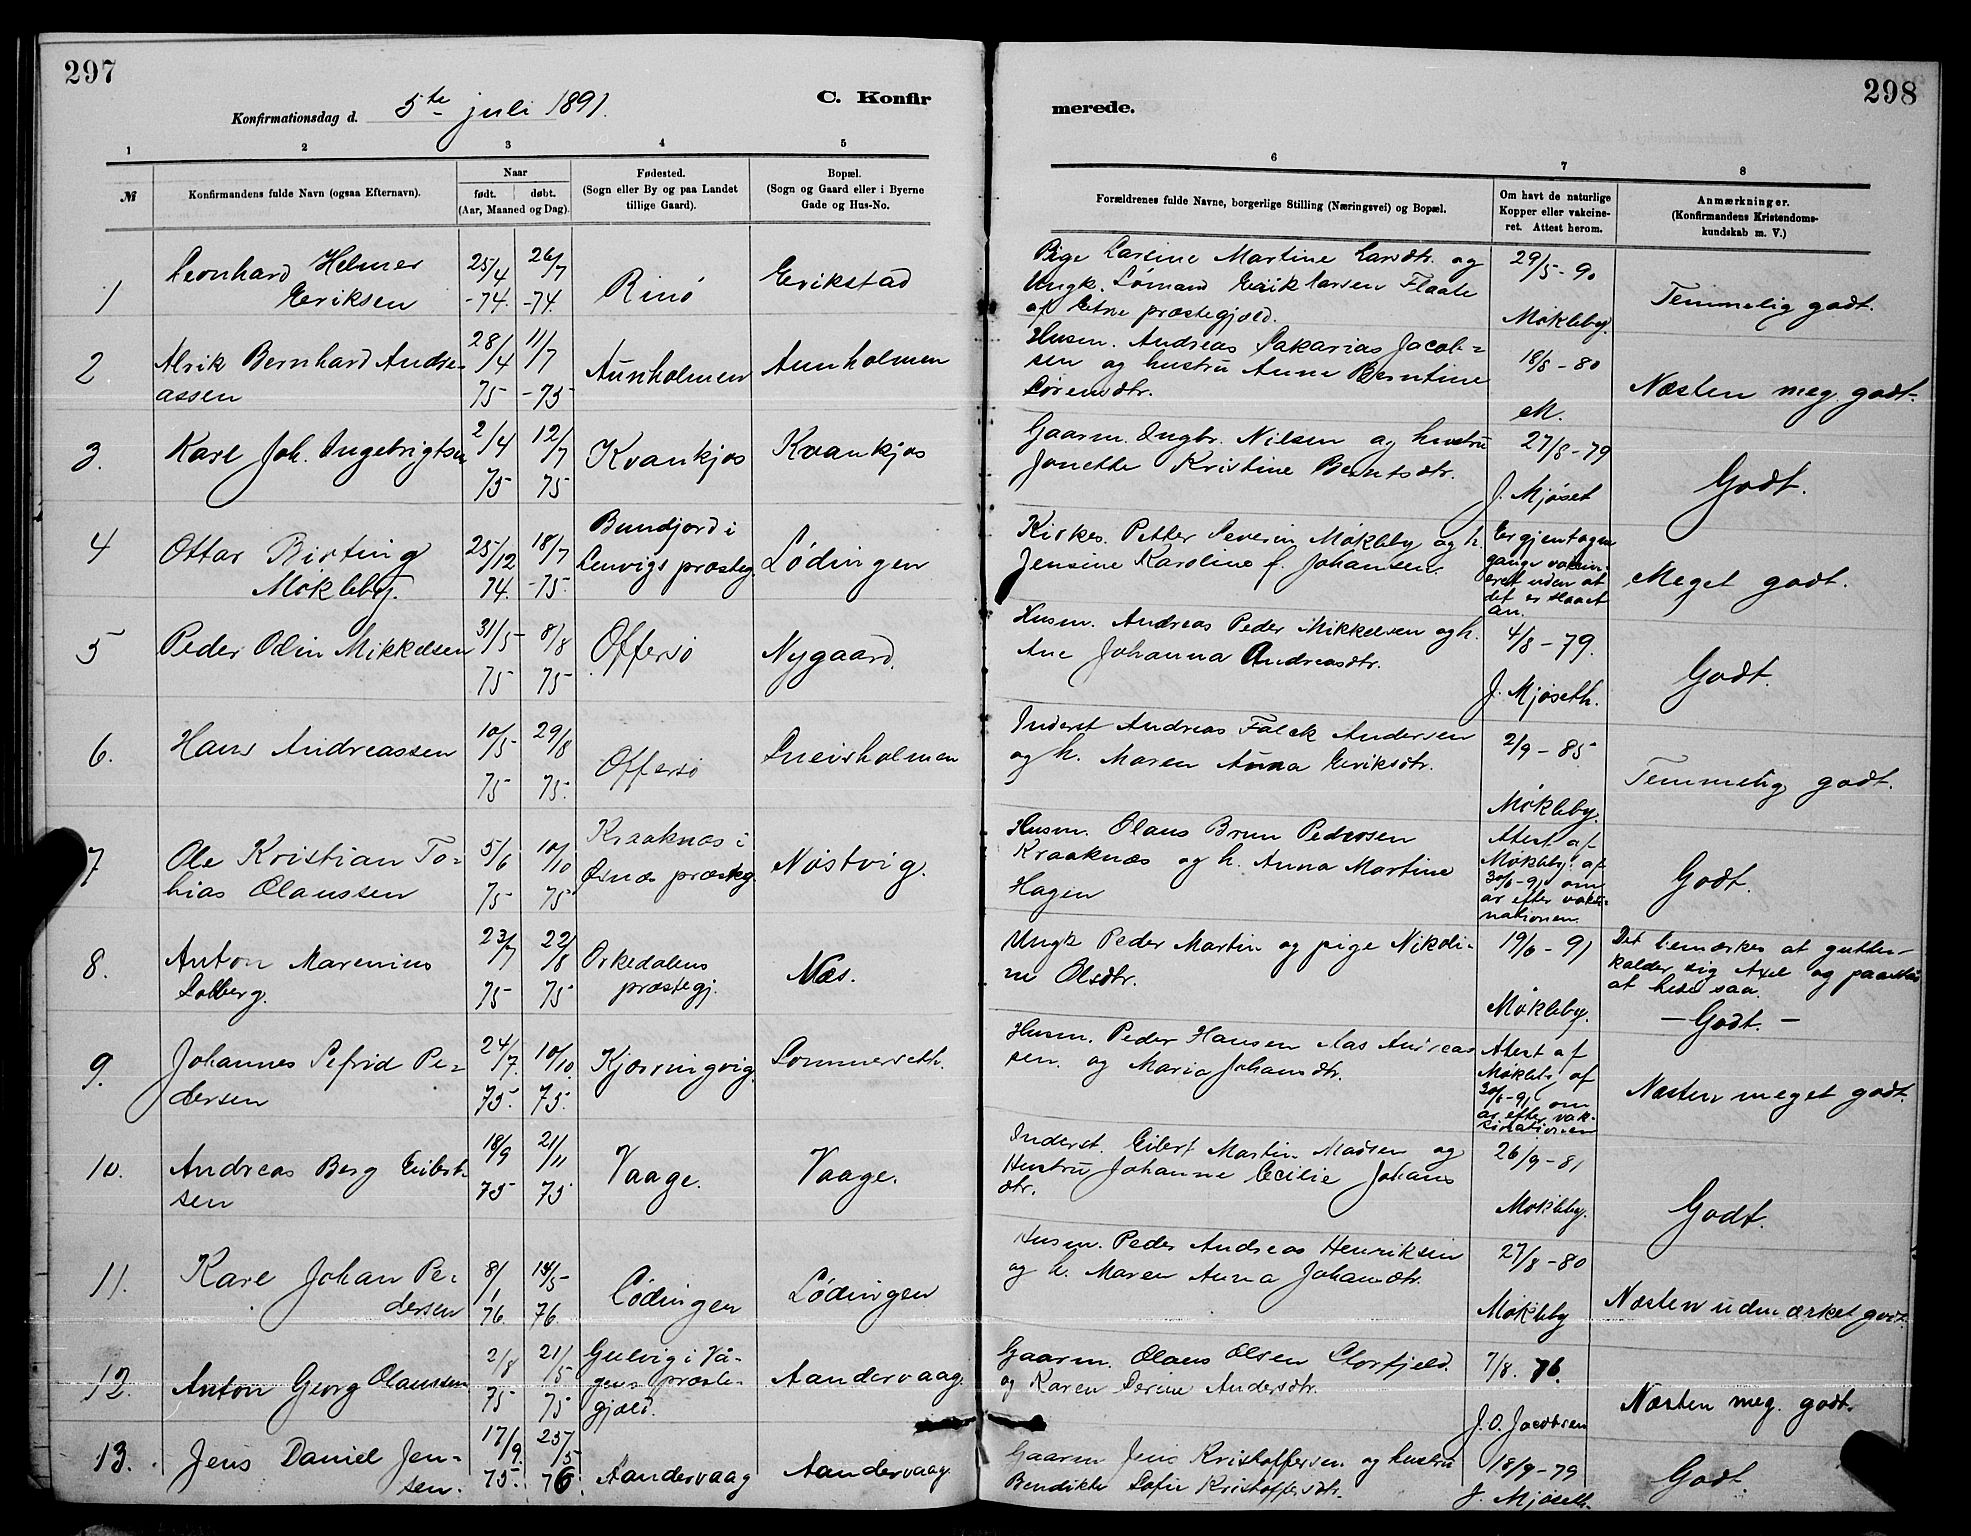 297
298
C. Konfir
merede.
Konfirmationsdag d. 5te juli 1891.
1 2 3 4 5 6 7 8
№
Konfirmandens fulde Navn (ogsaa Efternavn).
Naar
født. døbt.
(Aar, Maaned og Dag).
Fødested.
(Sogn eller By og paa Landet
tillige Gaard).
Bopæl.
(Sogn og Gaard eller i Byerne
Gade og Hus-No.
Forældrenes fulde Navne, borgerlige Stilling (Næringsvei) og Bopæl.
Om havt de naturlige
Kopper eller vakcine-
ret. Attest herom.
Anmærkninger.
(Konfirmandens Kristendoms-
kundskab m. V.)
1
Leonhard Helmer
Eriksen
25/4 26/7
-74. -74.
Rinø
Erikstad
Pige Larsine Martine Larsdtr. og
Ungk. Lømand Erik Larsen Flaate
af Etne præstegjæld.
29/5 - 90
Møkleby.
Temmelig godt.
2
Alrik Bernhard Andre-
assen
28/4 11/7
75 -75
Aunholmen
Aunholmen
Husm. Andreas Sakarias Jacob-
sen og hustru Anne Berntine
Sørensdtr.
18/8 - 80
M.
Næsten meg. godt.
3.
Karl Joh. Ingebrigtsen
2/4 12/7
75 75
Kvankjos
Kvankjos
Gaarm. Ingbr. Nilsen og hustru
Jonette Kristine Berntsdtr.
27/8 - 79
J. Mjøset
Godt.
4
Ottar Birting
Møkleby.
25/12 18/7
74. -75.
Bundjord i
Lenvigs præsteg.
Lødingen
Kirkes. Petter Severin Møkleby og h.
Jensine Karoline f. Johansen.
Er gjentagne
gange vakcin-
eret uden at
det er slaaet
an.
Meget godt.
5
Peder Odin Mikkelsen
31/5 8/8
75 75
Offersø
Nygaard.
Husm. Andreas Peder Mikkelsen og h.
Ane Johanna Andreasdtr.
4/8 - 79.
J. Mjøseth.
Godt.
6.
Hans Andreassen
10/5 29/8
75 75.
Offersø
Sneisholmen
Inderst Andreas Falck Andersen
og h. Maren Anna Eriksdtr.
2/9 - 85
Møkleby.
Temmelig godt.
7
Ole Kristian To-
bias Olaussen
5/6 10/10
75 75
Kraaknæs i
Øxnæs præsteg.
Nøstvig.
Husm. Olaus Brun Pedersen
Kraaknæs og h. Anna Martine
Hagen
Attest af
Møkleby af
30/6-91 om
ar efter vakci-
nationen.
Godt.
8.
Anton Marenius
Solberg.
23/7 22/8
75 75
Orkedalens
præstegj.
Næs.
Ungk Peder Martin og pige Nikoli-
ne Olsdtr.
19/6 - 91
Møkleby.
Det bemærkes at gutten
kalder sig Axel og paastaar
at hede saa.
- Godt. -
9.
Johannes Sefrid Pe-
dersen
24/7. 10/10.
75. 75.
Kjærringvig.
Sommerseth.
Husm. Peder Hansen Aas Andreas
sen. og Maria Johansdtr.
Attest af
Møkleby af
30/6-91 om
ar efter vak-
sinationen
Næsten meget godt.
10.
Andreas Berg Eilert-
sen
18/9 21/11
75 75
Vaage.
Vaage.
Inderst. Eilert Martin Madsen og
Hustru Johanne Cecilie Johans
dtr.
26/9 - 81
Møkleby.
Godt.
11.
Karl Johan Pe-
dersen
8/1 14/5
76. 76
Lødingen
Lødingen
Husm. Peder Andreas Henriksen
og h. Maren Anna Johansdtr.
27/8 - 80
Møkleby
Næsten udmærket godt.
12.
Anton Georg Olaussen
2/8 21/5
75 75
Gulvig i Vå-
gens præste-
gjæld.
Aandervaag.
Gaarm. Olaus Olsen Storfjeld.
og Karen Serine Andersdtr.
7/8. 76.
J. O. Jacobsen
Næsten meg. godt.
13.
Jens Daniel Jen-
sen.
17/9. 25/5
75. 76.
Aandervaag
Aandervaag.
Gaarm Jens Kristoffersen og hustru
Bendikte Sofie Kristoffersdtr.
18/9 - 79
J. Mjøseth.
Godt.